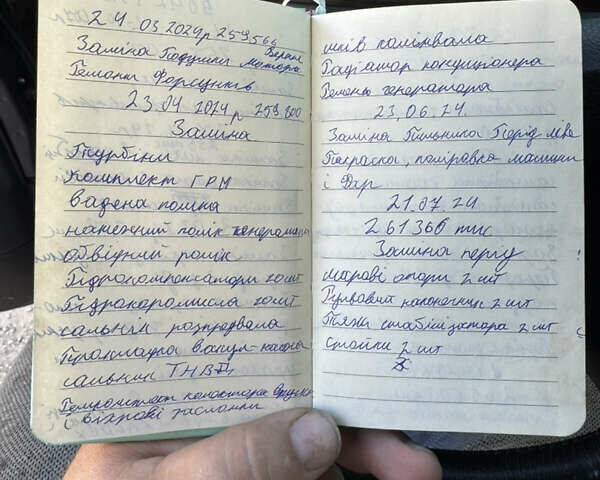 24.03.2024р 259566
Заміна Подушки Верхня мотора
Ремонт Форсунків
23.04 2024р 259800
Заміна
Турбіни
Комплект ГРМ
вадена помпа
натежний ролік генератора
обвідний ролік
Гідрокомпенсатори 20 шт
Гідрокоромисла 20 шт
сальнік розпредвала
Прокладка вакум-насоса
сальник ТНВД
і віхрові заслонки
шків колінвала
Радіатор кондиціонера
Ремень генератора
23,06,24.
Заміна Пильника Перід ліве
Покраска, поліровка машини
і Фар
21.07 24
261366 тис
Заміна перід
шарові опори 2 шт
Рульовий наконечник 2 шт
Тяжи стабілізатора 2 шт
стойки 2 шт